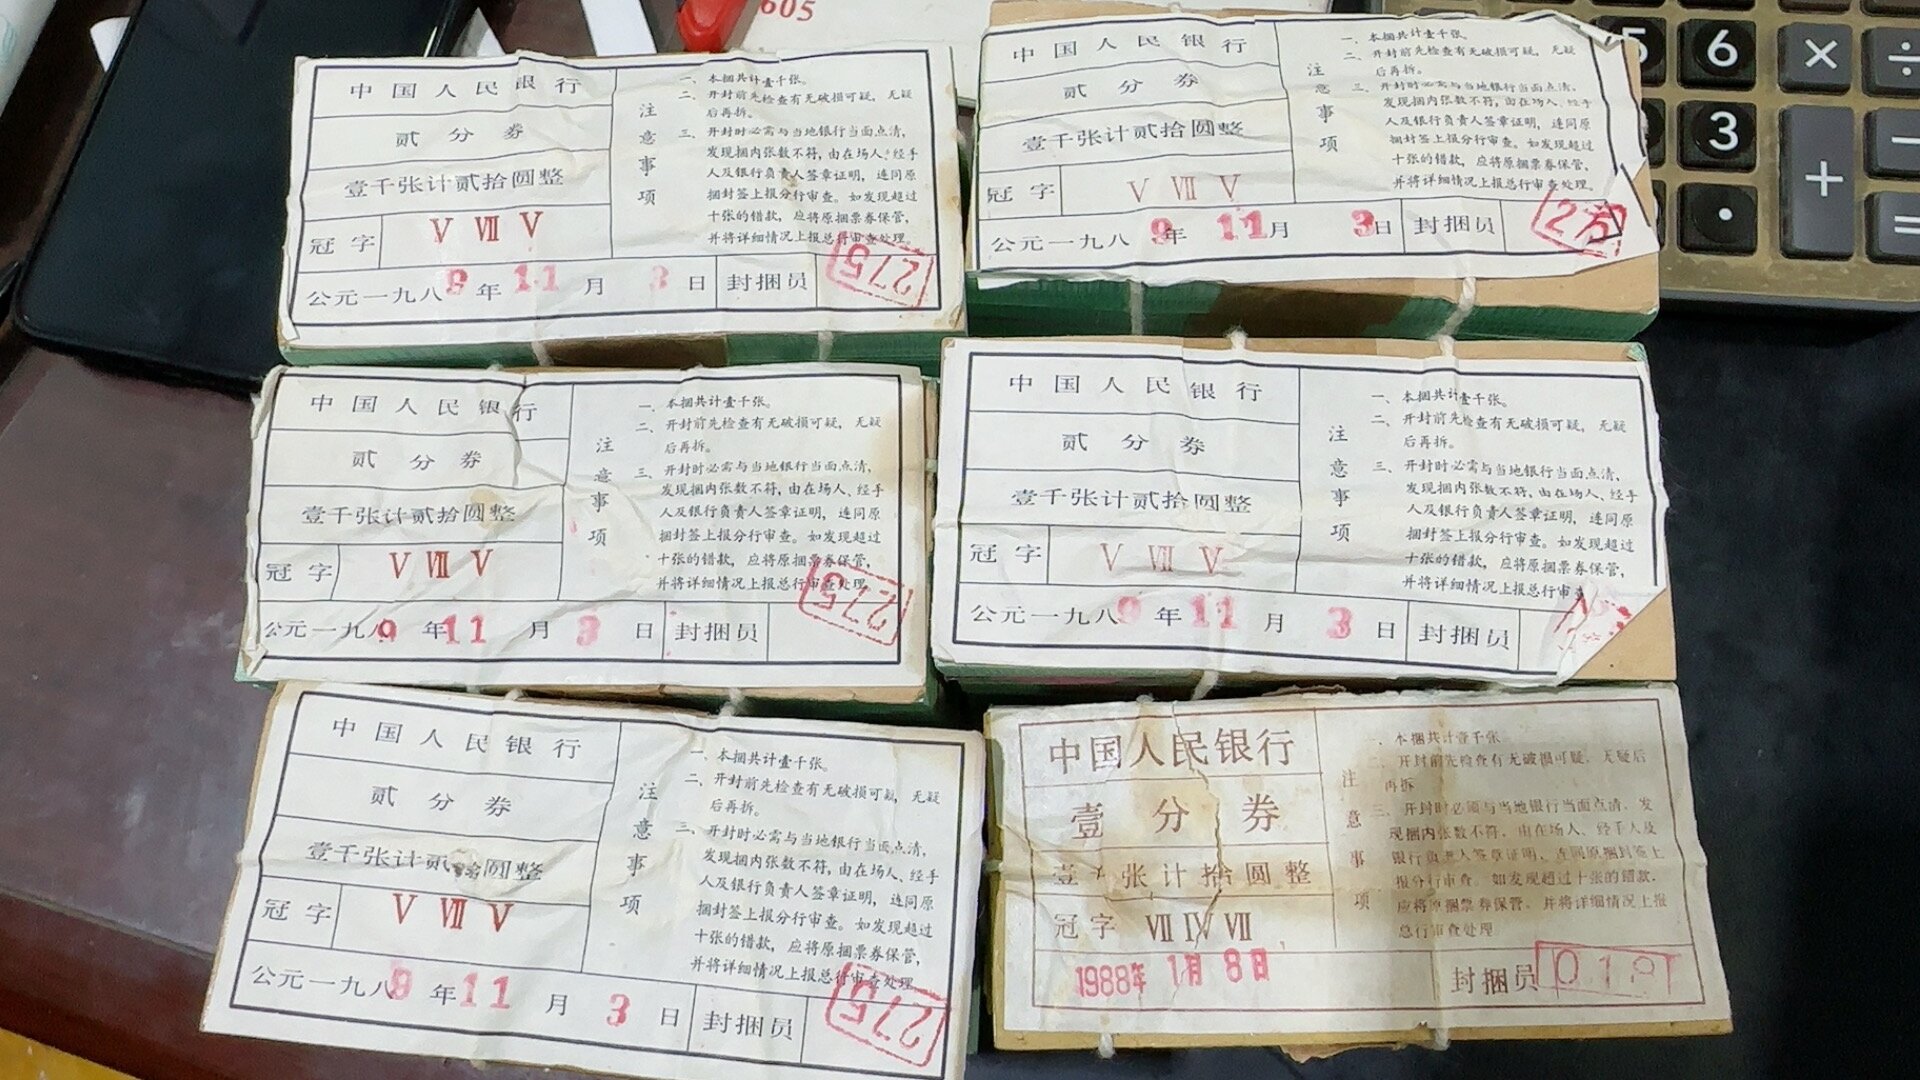 605
5 6 × ÷
3 + −
• =
中国人民银行
贰分券
壹千张计贰拾圆整
冠字 V VII V
公元一九八9年11月3日 封捆员 275
注意事项
一、本捆共计壹千张。
二、开封前先检查有无破损可疑，无疑
后再拆。
三、开封时必需与当地银行当面点清，
发现捆内张数不符，由在场人、经手
人及银行负责人签章证明，连同原
捆封签上报分行审查。如发现超过
十张的错款，应将原捆票券保管，
并将详细情况上报总行审查处理。
中国人民银行
贰分券
壹千张计贰拾圆整
冠字 V VII V
公元一九八9年11月3日 封捆员 275
注意事项
一、本捆共计壹千张。
二、开封前先检查有无破损可疑，无疑
后再拆。
三、开封时必需与当地银行当面点清，
发现捆内张数不符，由在场人、经手
人及银行负责人签章证明，连同原
捆封签上报分行审查。如发现超过
十张的错款，应将原捆票券保管，
并将详细情况上报总行审查处理。
中国人民银行
贰分券
壹千张计贰拾圆整
冠字 V VII V
公元一九八9年11月3日 封捆员 275
注意事项
一、本捆共计壹千张。
二、开封前先检查有无破损可疑，无疑
后再拆。
三、开封时必需与当地银行当面点清，
发现捆内张数不符，由在场人、经手
人及银行负责人签章证明，连同原
捆封签上报分行审查。如发现超过
十张的错款，应将原捆票券保管，
并将详细情况上报总行审查处理
中国人民银行
贰分券
壹千张计贰拾圆整
冠字 V VII V
公元一九八9年11月3日 封捆员
注意事项
一、本捆共计壹千张。
二、开封前先检查有无破损可疑，无疑
后再拆。
三、开封时必需与当地银行当面点清，
发现捆内张数不符，由在场人、经手
人及银行负责人签章证明，连同原
捆封签上报分行审查。如发现超过
十张的错款，应将原捆票券保管，
并将详细情况上报总行审查
中国人民银行
贰分券
壹千张计贰拾圆整
冠字 V VII V
公元一九八9年11月3日 封捆员 275
注意事项
一、本捆共计壹千张。
二、开封前先检查有无破损可疑，无疑
后再拆。
三、开封时必需与当地银行当面点清，
发现捆内张数不符，由在场人、经手
人及银行负责人签章证明，连同原
捆封签上报分行审查。如发现超过
十张的错款，应将原捆票券保管，
并将详细情况上报总行审查处理
中国人民银行
壹分券
壹 张计拾圆整
冠字 VII IV VII
1988年1月8日 封捆员 018
注意事项
一、本捆共计壹千张
二、开封前先检查有无破损可疑，无疑后
再拆
三、开封时必须与当地银行当面点清，发
现捆内张数不符，由在场人、经手人及
银行负责人签章证明、连同原捆封签上
报分行审查。如发现超过十张的错款，
应将原捆票券保管。并将详细情况上报
总行审查处理